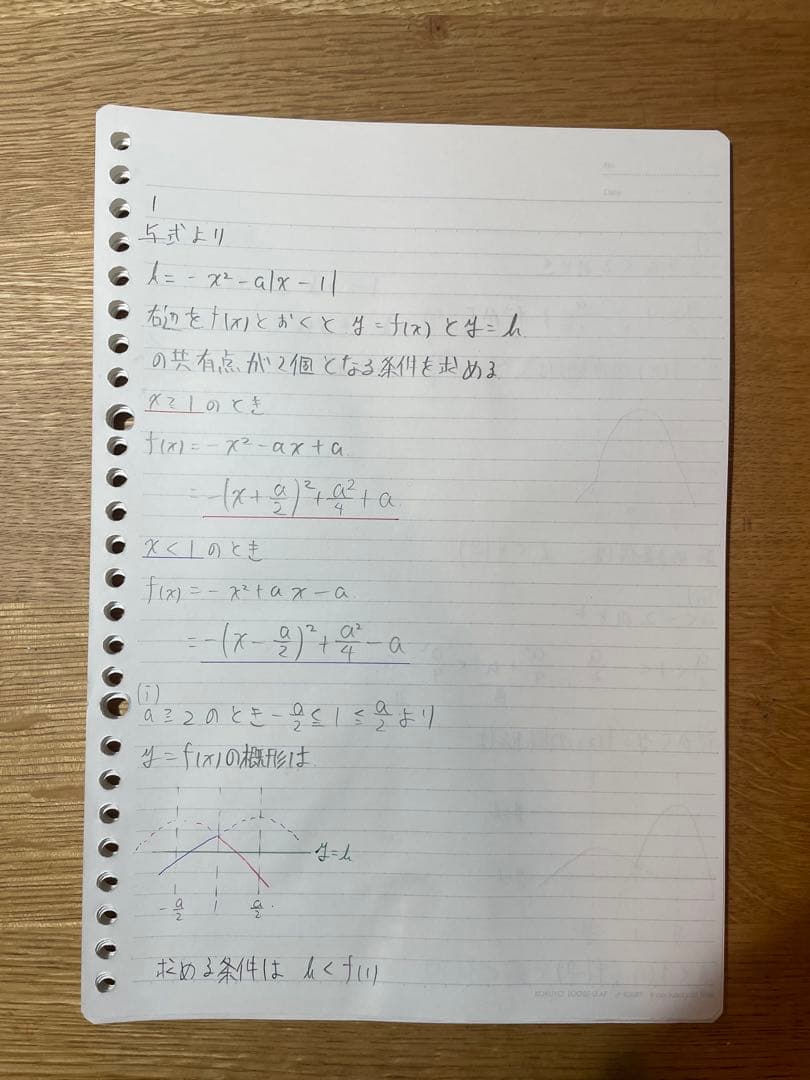 No.
Date
1
与式より
k = - x² - a|x - 1|
右辺をf(x)とおくと y = f(x) と y = k
の共有点が2個となる条件を求める
x ≧ 1 のとき
f(x) = - x² - ax + a
= -(x + a/2)² + a²/4 + a
x < 1 のとき
f(x) = - x² + ax - a
= -(x - a/2)² + a²/4 - a
(i)
a ≧ 2 のとき - a/2 ≦ 1 ≦ a/2 より
y = f(x)の概形は
y = k
- a/2 1 a/2
求める条件は k < f(1)